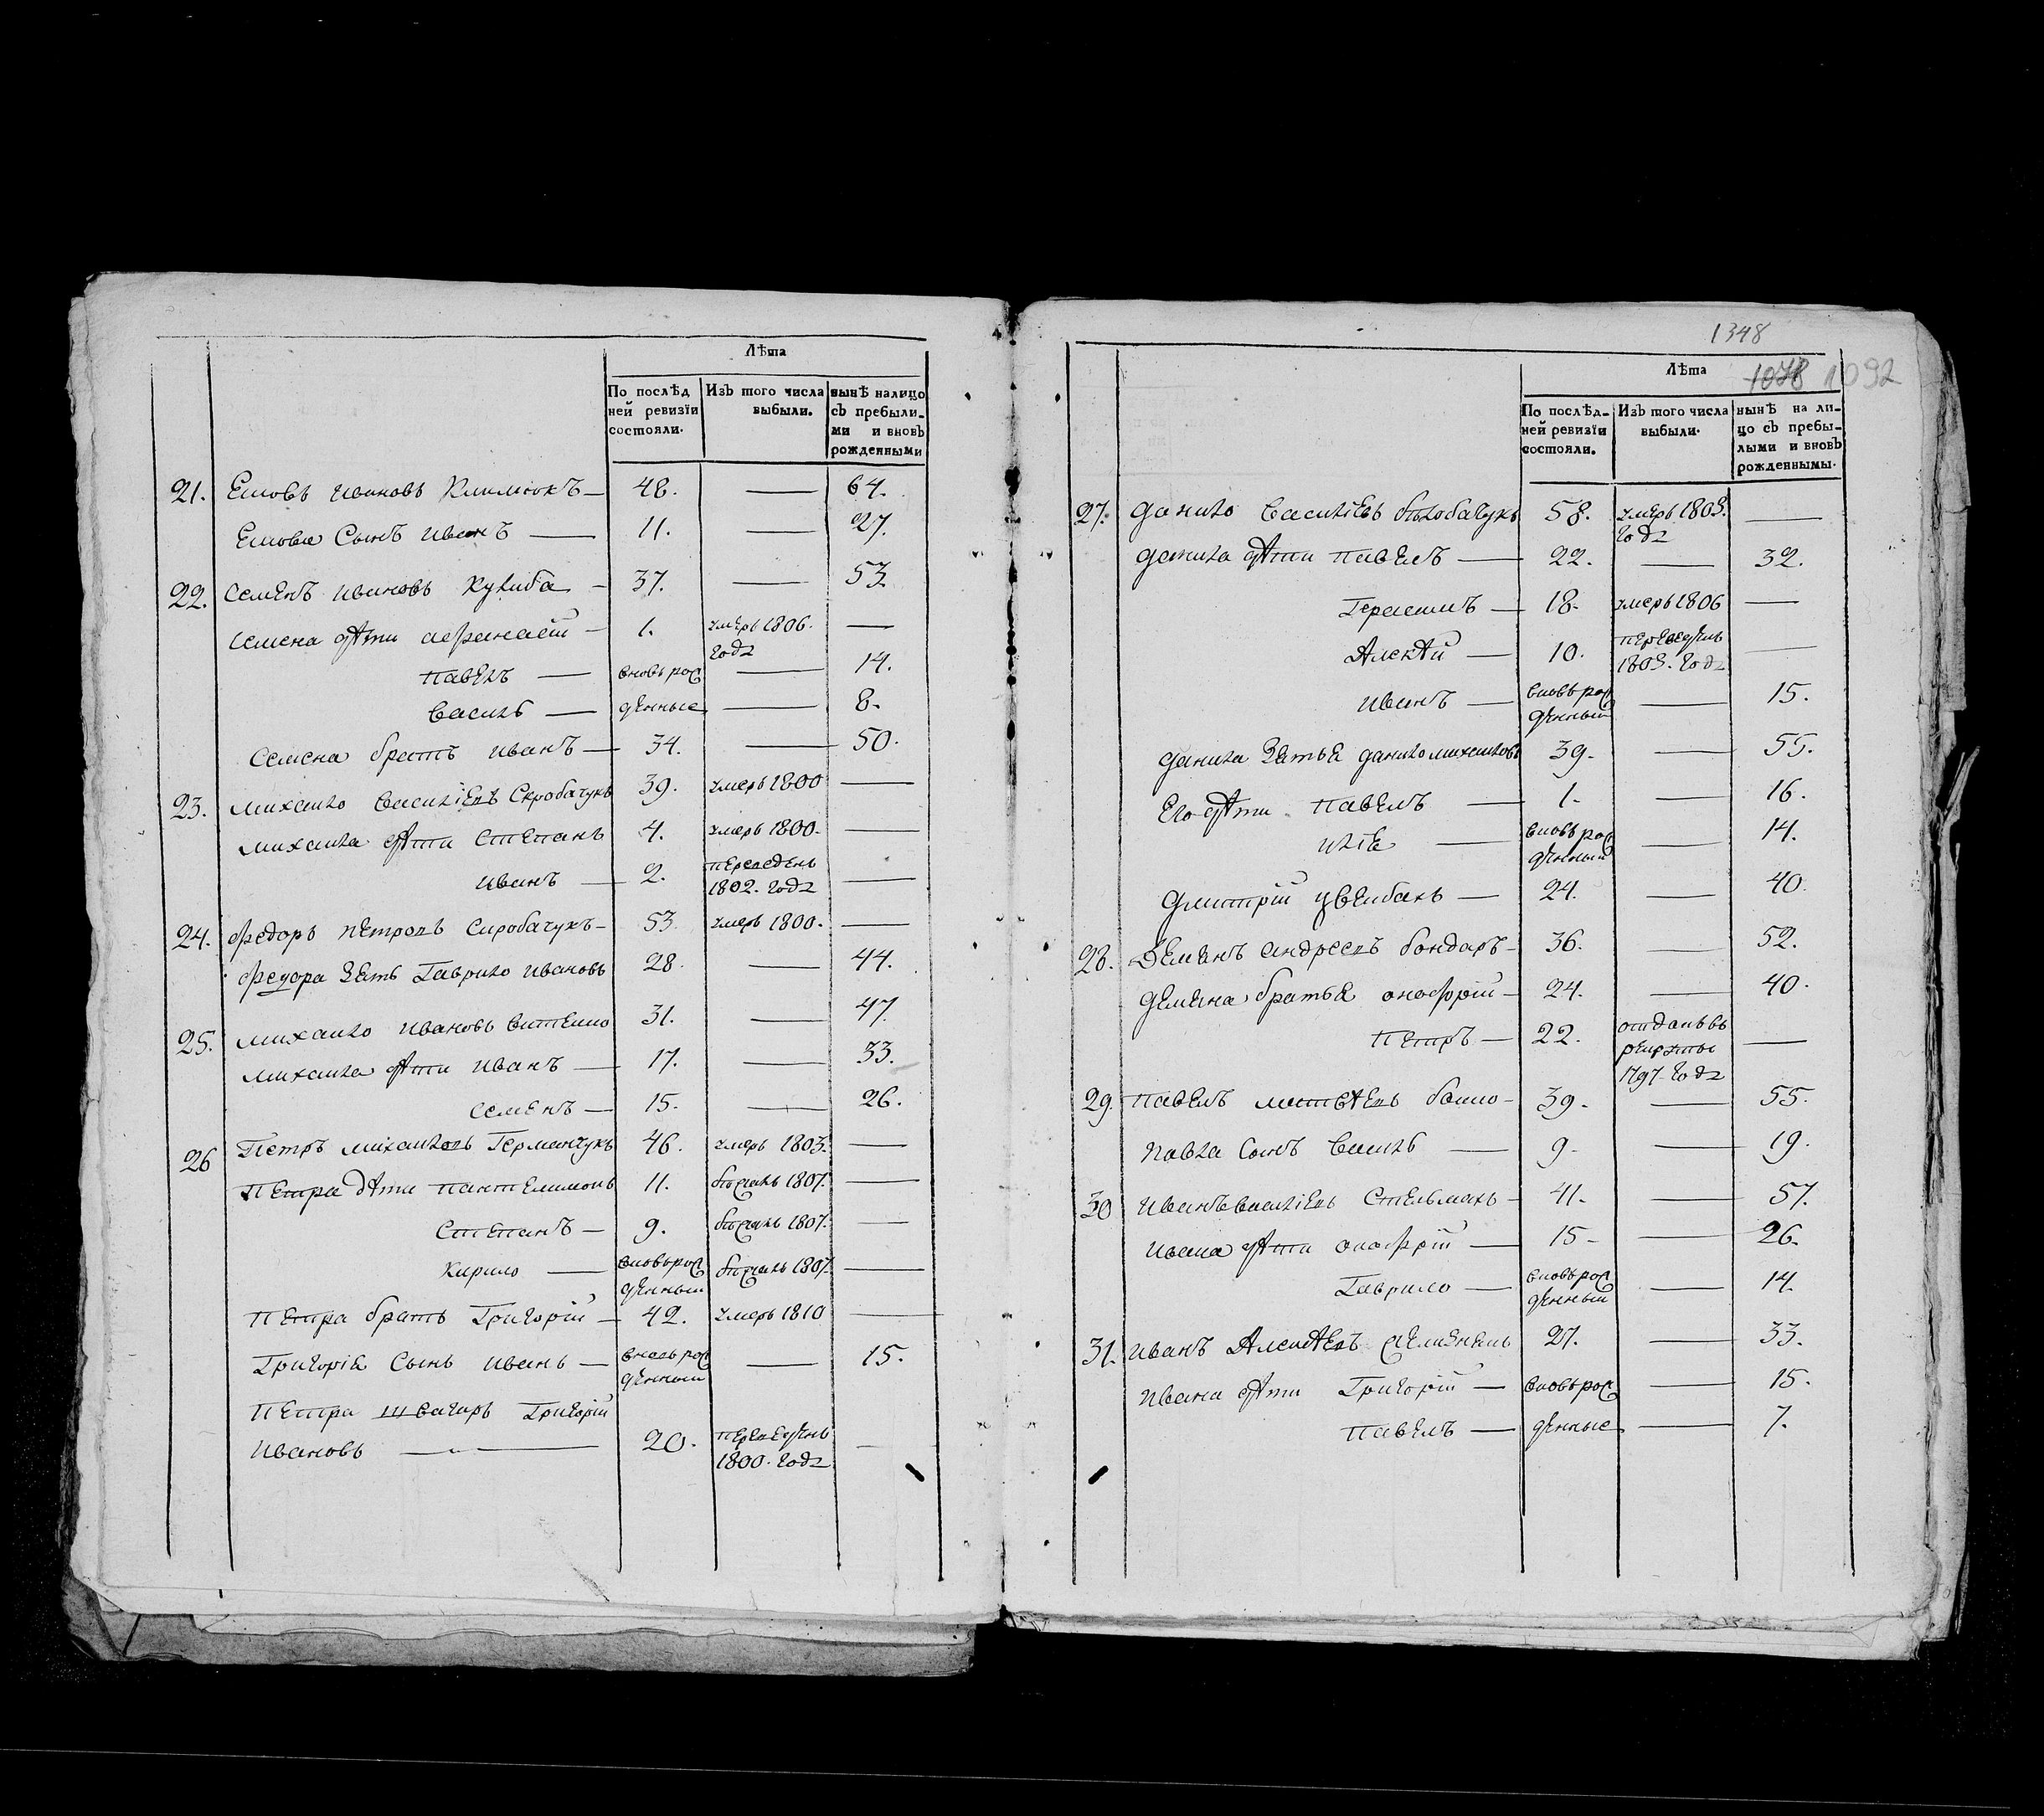 Лѣта
По послѣд
ней ревизїи
состояли.
Изъ того числа
выбыли.
нынѣ налицо
съ пребылы-
ми и вновь
рожденными
21. Яковъ Ивановъ Климюкъ — 48. — 64.
Якова Сынъ Иванъ — 11. — 27.
22. Семенъ Ивановъ Кулиба — 37. — 53.
Семена дѣти Афанасій — 1. умеръ 1806. —
года
Павелъ — вновь рож — 14.
Василь — денные — 8.
Семена братъ Иванъ — 34. — 50.
23. Михайло Васильевъ Скробачукъ 39. умеръ 1800 —
Михайла дѣти Степанъ 4. умеръ 1800. —
Иванъ — 2. переведенъ —
1802. года
24. Федоръ Петровъ Скробачукъ — 53. умеръ 1800. —
Федора Зять Гаврило Ивановъ 28. — 44.
25. Михайло Ивановъ 31. — 47.
Михайла дѣти Иванъ — 17. — 33.
Семенъ — 15. — 26.
26 Петръ Михайловъ Германчукъ 46. умеръ 1803. —
Петра дѣти Пантелимонъ 11. бѣжалъ 1807. —
Степанъ — 9. бѣжалъ 1807. —
Кирило — вновь рож бѣжалъ 1807. —
денный
Петра братъ Григорій — 42. умеръ 1810 —
Григорія Сынъ Иванъ — вновь рож — 15.
денный
Петра Швагиръ Григорій
Ивановъ — 20. переведенъ —
1800. года
1348
Лѣта
1078 1092
По послѣд-
ней ревизїи
состояли.
Изъ того числа
выбыли.
нынѣ на ли-
цо съ пребы-
лыми и вновь
рожденнымы.
27. Данило Васильевъ 58. умеръ 1803. —
года
Данила дѣти Павелъ — 22. — 32.
Герасимъ — 18. умеръ 1806 —
Алексѣй — 10. переведенъ —
1803. года
Иванъ — вновь рож — 15.
денный
Данила Зятья Данило Михайловъ 39. — 55.
Его дѣти Павелъ — 1. — 16.
Илія — вновь рож — 14.
денный
Дмитрій — 24. — 40.
28. Демянъ Андреевъ Бондаръ — 36. — 52.
Демяна братья Онофрій — 24. — 40.
Петръ — 22. отданъ въ —
рекруты
1797. года
29. Павелъ Матвѣевъ 39. — 55.
Павла Сынъ Василь — 9. — 19.
30 Иванъ Васильевъ Стельмахъ — 41. — 57.
Ивана дѣти Онофрій — 15 — 26.
Гаврило — вновь рож — 14.
денный
31. Иванъ Алексѣевъ 27. — 33.
Ивана дѣти Григорій — вновь рож — 15.
Павелъ — денные — 7.